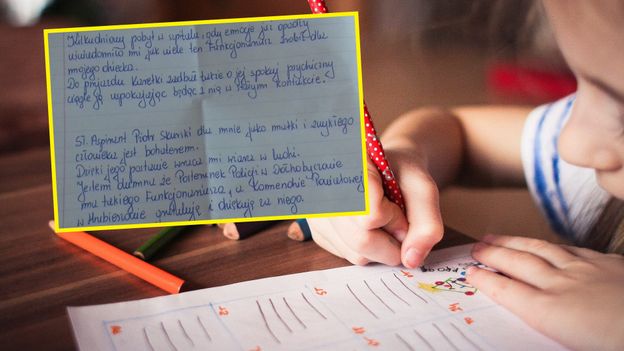 Kilkudniowy pobyt w szpitalu, gdy emocje już opadły
uświadomiły mi jak wiele ten Funkcjonariusz zrobił dla
mojego dziecka.
Do przyjazdu karetki zadbał także o jej spokój psychiczny
ciągle ją uspokajając będąc z nią w stałym kontakcie.
St. Aspirant Piotr Skarski dla mnie jako matki i zwykłego
człowieka jest bohaterem.
Dzięki jego postawie wraca mi wiara w ludzi.
Jestem dumna że Posterunek Policji w Dołhobyczowie
ma takiego Funkcjonariusza, a Komendzie Powiatowej
w Hrubieszowie gratuluję i dziękuję za niego.